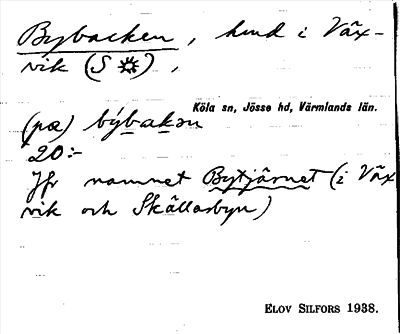 Bybacken, hmd i Väx-
vik (S ☼),
Köla sn, Jösse hd, Värmlands län.
(pæ) býbakən
20:-
Jfr namnet Bytjärnet (i Väx
vik och Skällarbyn)
ELOV SILFORS 1938.